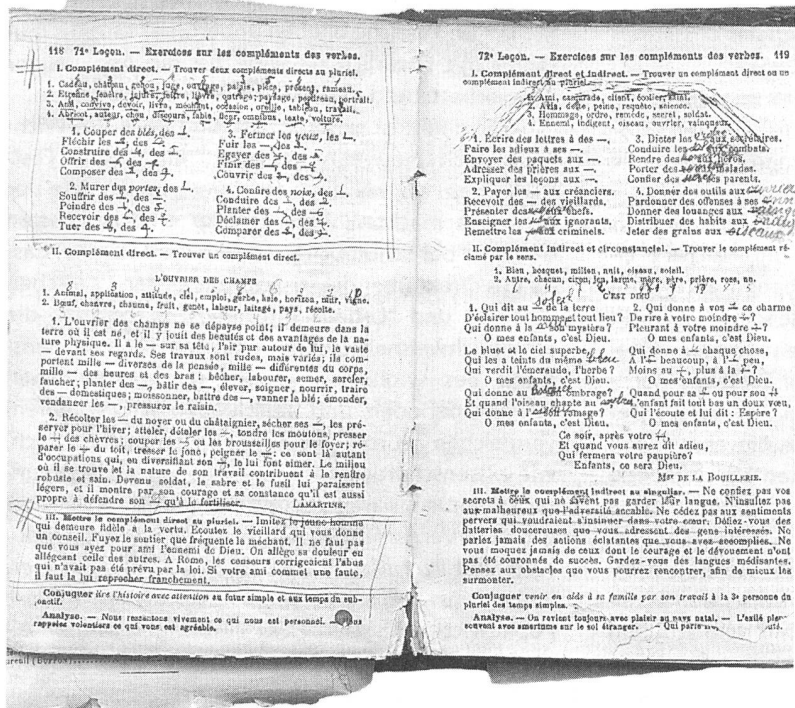 118 71e Leçon. — Exercices sur les compléments des verbes.
I. Complément direct. — Trouver deux compléments directs au pluriel.
1. Cadeau, château, genou, juge, ouvrage, palais, pièce, présent, rameau.
2. Etrenne, fenêtre, lettre, livre, outrage, paysage, perdreau, portrait.
3. Ami, convive, devoir, livre, méchant, occasion, oreille, tableau, travail.
4. Abricot, auteur, chou, discours, fable, fleur, omnibus, texte, voiture.
1. Couper des blés, des
Fléchir les —, des
Construire des —, des
Offrir des —, des
Composer des —, des
2. Murer des portes, des
Souffrir des —, des
Peindre des —, des
Recevoir des —, des
Tuer des —, des
3. Fermer les yeux, les
Fuir les —, les
Egayer des —, des
Finir des —, des
Couvrir des —, des
4. Confire des noix, des
Conduire des —, des
Planter des —, des
Déclamer des —, des
Comparer des —, des
II. Complément direct. — Trouver un complément direct.
L'OUVRIER DES CHAMPS
1. Animal, application, attitude, ciel, emploi, gerbe, haie, horizon, mûr, vigne.
2. Bœuf, chanvre, chaume, fruit, genêt, labeur, laitage, pays, récolte.
1. L'ouvrier des champs ne se dépayse point; il demeure dans la
terre où il est né, et il y jouit des beautés et des avantages de la na-
ture physique. Il a le — sur sa tête, l'air pur autour de lui, le vaste
— devant ses regards. Ses travaux sont rudes, mais variés; ils com-
portent mille — diverses de la pensée, mille — différentes du corps,
mille — des heures et des bras : bêcher, labourer, semer, sarcler,
faucher; planter des —, bâtir des —, élever, soigner, nourrir, traire
des — domestiques; moissonner, battre des —, vanner le blé; émonder,
vendanger les —, pressurer le raisin.
2. Récolter les — du noyer ou du châtaignier, sécher ses —, les pré-
server pour l'hiver; atteler, dételer les —, tondre les moutons, presser
le — des chèvres; couper les — ou les broussailles pour le foyer; ré-
parer le — du toit, tresser le jonc, peigner le —: ce sont là autant
d'occupations qui, en diversifiant son —, le lui font aimer. Le milieu
où il se trouve et la nature de son travail contribuent à le rendre
robuste et sain. Devenu soldat, le sabre et le fusil lui paraissent
légers, et il montre par son courage et sa constance qu'il est aussi
propre à défendre son — qu'à le fertiliser. LAMARTINE.
III. Mettre le complément direct au pluriel. — Imitez le jeune homme
qui demeure fidèle à la vertu. Ecoutez le vieillard qui vous donne
un conseil. Fuyez le sentier que fréquente le méchant. Il ne faut pas
que vous ayez pour ami l'ennemi de Dieu. On allège sa douleur en
allégeant celle des autres. A Rome, les censeurs corrigeaient l'abus
qui n'avait pas été prévu par la loi. Si votre ami commet une faute,
il faut la lui reprocher franchement.
Conjuguer lire l'histoire avec attention au futur simple et aux temps du sub-
jonctif.
Analyse. — Nous ressentons vivement ce qui nous est personnel. —
rappelez volontiers ce qui vous est agréable.
72e Leçon. — Exercices sur les compléments des verbes. 119
I. Complément direct et indirect. — Trouver un complément direct ou un
complément indirect au pluriel.
1. Ami, camarade, client, écolier, saint.
2. Avis, dette, peine, requête, science.
3. Hommage, ordre, remède, secret, soldat.
4. Ennemi, indigent, oiseau, ouvrier, vainqueur.
1. Ecrire des lettres à des —.
Faire les adieux à ses —.
Envoyer des paquets aux —.
Adresser des prières aux —.
Expliquer les leçons aux —.
2. Payer les — aux créanciers.
Recevoir des — des vieillards.
Présenter des — aux chefs.
Enseigner les — aux ignorants.
Remettre les — aux criminels.
3. Dicter les — aux secrétaires.
Conduire les — aux combats.
Rendre des — aux héros.
Porter des — aux malades.
Confier des — à ses parents.
4. Donner des outils aux
Pardonner des offenses à ses
Donner des louanges aux
Distribuer des habits aux
Jeter des grains aux oiseaux
II. Complément indirect et circonstanciel. — Trouver le complément ré-
clamé par le sens.
1. Bleu, bosquet, milieu, nuit, oiseau, soleil.
2. Autre, chacun, ciron, jeu, larme, mère, père, prière, rose, un.
C'EST DIEU
1. Qui dit au soleil de la terre
D'éclairer tout homme et tout lieu?
Qui donne à la — son mystère?
O mes enfants, c'est Dieu.
Le bluet et le ciel superbe,
Qui les a teints du même
Qui verdit l'émeraude, l'herbe?
O mes enfants, c'est Dieu.
Qui donne au bosquet son ombrage?
Et quand l'oiseau chante au
Qui donne à l'oiseau son ramage?
O mes enfants, c'est Dieu.
2. Qui donne à vos — ce charme
De rire à votre moindre —?
Pleurant à votre moindre —?
O mes enfants, c'est Dieu.
Qui donne à — chaque chose,
A l'— beaucoup, à l'— peu,
Moins au —, plus à la —?
O mes enfants, c'est Dieu.
Quand pour sa — ou pour son —
L'enfant fait tout bas un doux vœu,
Qui l'écoute et lui dit : Espère?
O mes enfants, c'est Dieu.
Ce soir, après votre —,
Et quand vous aurez dit adieu,
Qui fermera votre paupière?
Enfants, ce sera Dieu.
Mgr DE LA BOUILLERIE.
III. Mettre le complément indirect au singulier. — Ne confiez pas vos
secrets à ceux qui ne savent pas garder leur langue. N'insultez pas
aux malheureux que l'adversité accable. Ne cédez pas aux sentiments
pervers qui voudraient s'insinuer dans votre cœur. Défiez-vous des
flatteries doucereuses que vous adressent des gens intéressés. Ne
parlez jamais des actions éclatantes que vous avez accomplies. Ne
vous moquez jamais de ceux dont le courage et le dévouement n'ont
pas été couronnés de succès. Gardez-vous des langues médisantes.
Pensez aux obstacles que vous pourrez rencontrer, afin de mieux les
surmonter.
Conjuguer venir en aide à sa famille par son travail à la 3e personne du
pluriel des temps simples.
Analyse. — On revient toujours avec plaisir au pays natal. — L'exilé pleu-
souvent avec amertume sur le sol étranger. — Qui parle